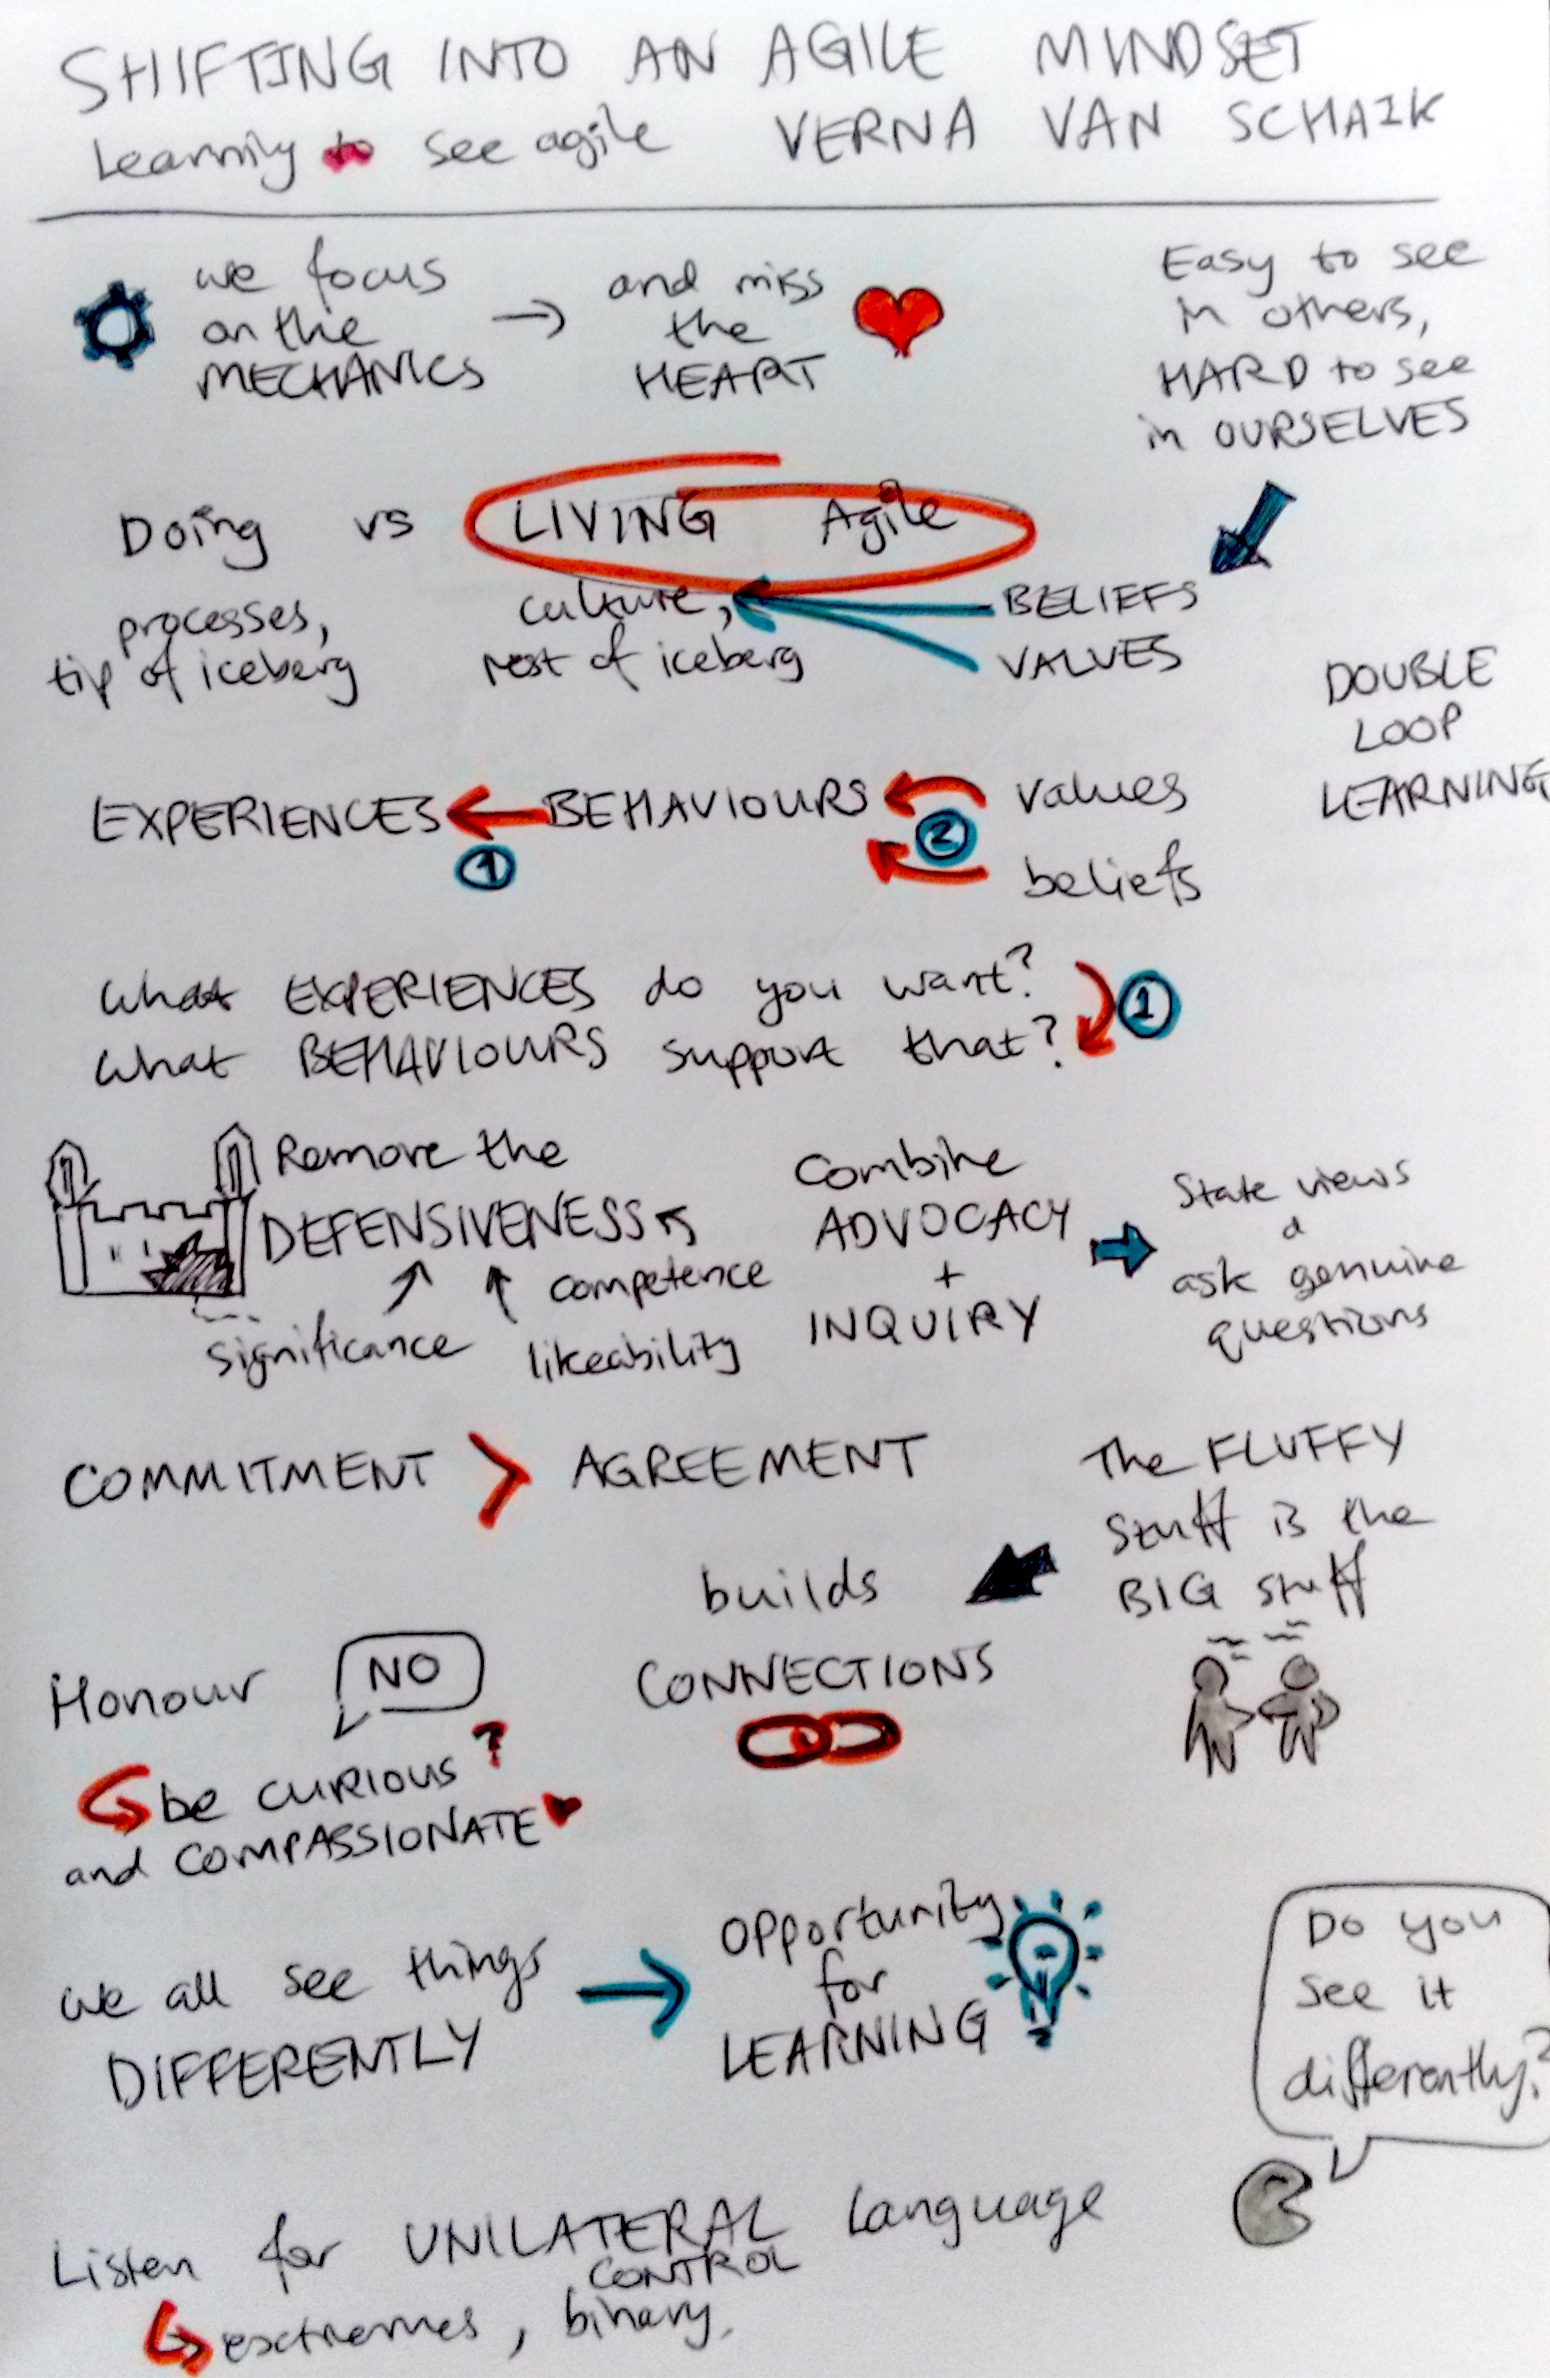 SHIFTING INTO AN AGILE MINDSET
Learning to see agile VERNA VAN SCHAIK
we focus
on the
MECHANICS
and miss
the
HEART
Easy to see
in others,
HARD to see
in OURSELVES
Doing vs LIVING Agile
processes,
tip of iceberg
culture,
rest of iceberg
BELIEFS
VALUES
DOUBLE
LOOP
LEARNING
EXPERIENCES BEHAVIOURS values
beliefs
1
2
What EXPERIENCES do you want?
What BEHAVIOURS support that?
1
Remove the
DEFENSIVENESS
competence
significance likeability
Combine
ADVOCACY
+
INQUIRY
State views
&
ask genuine
questions
COMMITMENT > AGREEMENT
The FLUFFY
stuff is the
BIG stuff
builds
CONNECTIONS
Honour NO
be CURIOUS ?
and COMPASSIONATE
we all see things
DIFFERENTLY
opportunity
for
LEARNING
Do you
see it
differently?
Listen for UNILATERAL language
CONTROL
exctremes, binary,